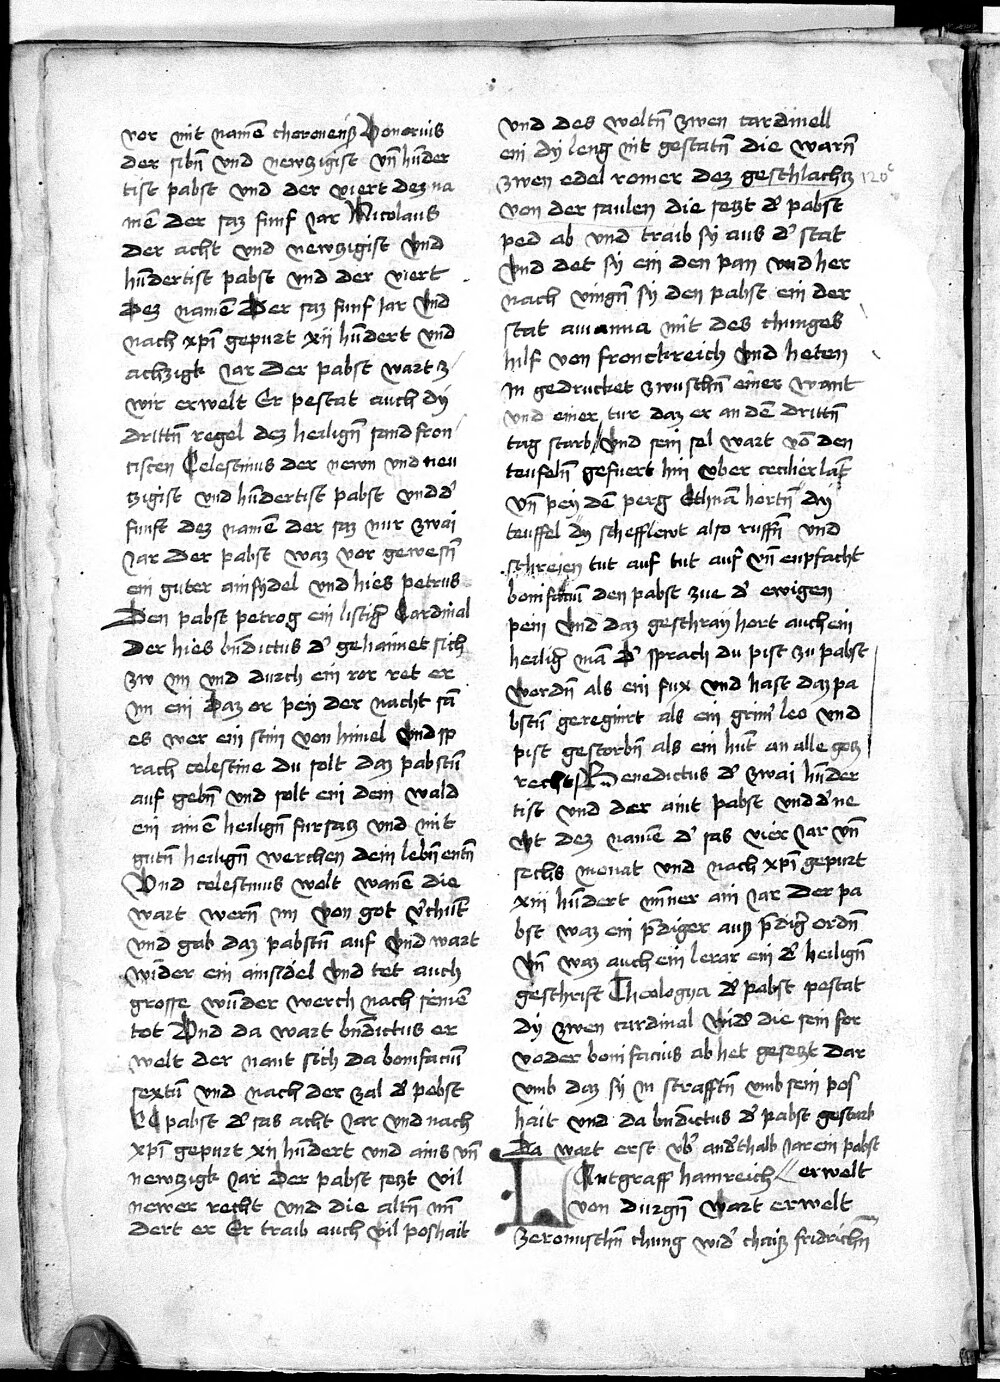 vor mit namē choronenß Honorius
der sibn̄ vnd newczigist vn̄ hūder
tist pabst vnd der viert dez na
men der saz funf Jar Nicolaus
der acht vnd newczigist vnd
hūdertist pabst vnd der viert
dez namē Der saz funf Jar vnd
nach xp̄i gepurt xij hūdert vnd
achzigk Jar Der pabst wart z
wir erwelt Er pestat auch dy
drittn̄ regel dez heilign̄ sand fron
cisten Celestinus der newn vnd neu
czigist vnd hūdertist pabst vnd d'
funft dez namē der saz nur zwai
Jar Der pabst waz vor gewesn̄
ein guter ainsydel vnd hies petrus
Den pabst petrog ein listig' Cardinal
Der hies bn̄dictus d' gehaimet sich
zw im vnd durch ein ror ret er
im ein Daz or pey der nacht sā
es wer ein stim von himel vnd sp
rach celestine du solt daz pabstū
auf gebn̄ vnd solt ein dem wald
ein ainē heilign̄ fursacz vnd mit
gutn̄ heilign̄ werchen dein lebn̄ entn̄
Vnd celestinus wolt wanē die
wart wern̄ im von got v'chūt
vnd gab daz pabstū auf vnd wart
wider ein ainsidel vnd tet auch
grosse wūder werch nach seinē
tot Vnd da wart bn̄dictus er
welt der nant sich da bonifaciū
sextū vnd nach der zal d' pebst
pabst d' sas acht Jar vnd nach
xp̄i gepurt xij hūdert vnd ains vn̄
newczigk Jar Der pabst seczt vil
newer recht vnd die altn̄ mī
dert er Er traib auch vil poshait
vnd des woltn̄ zwen cardinell
ein dy leng nit gestatn̄ die warn̄
zwen edel romer dez geschlachcz
von der saulen die seczt d' pabst
ped ab vnd traib sy aus d' stat
vnd det sy ein den pan vnd her
nach vingn̄ sy den pabst ein der
stat auianna mit des chunges
hilf von fronckreich vnd heten
in gedrucket zwuschn̄ einer want
vnd einer tur daz er an dē drittn̄
tag starb vnd sein sel wart vō den
teufeln̄ gefuert hin vber cecilier lāt
vn̄ pey dē perg Ethnā hortn̄ dy
teuffel dy schefflewt also ruffn̄ vnd
schreien tut auf tut auf vn̄ enpfacht
bonifaciū den pabst zue d' ewigen
pein vnd daz geschray hort auch ein
heilig' mā d' sprach du pist zu pabst
wordn̄ als ein fux vnd hast daz pa
bstū geregnirt als ein grim̄ leo vnd
pist gestorbn̄ als ein hūt an alle gocz
recht Benedictus d' zwai hūder
tist vnd der aint pabst vnd d' ne
wt dez namē d' sas vier Jar vn̄
sechs monat vnd nach xp̄i gepurt
xiij hūdert mīner ain Jar Der pa
bst waz ein p̄diger auß p̄dig' ordn̄
vn̄ waz auch ein lerar ein d' heilign̄
geschrift Theologya d' pabst pestat
dy zwen cardinal wid' die sein for
voder bonifacius ab het geseczt dar
vmb daz sy in strafftn̄ vmb sein pos
hait vnd da bn̄dictus d' pabst gestarb
Da wart erst vb' and'thalb Jar ein pabst
Lantgraff hainreich erwelt
von durgn̄ wart erwelt
zeromischn̄ chung wid' chaiß fridrichn̄